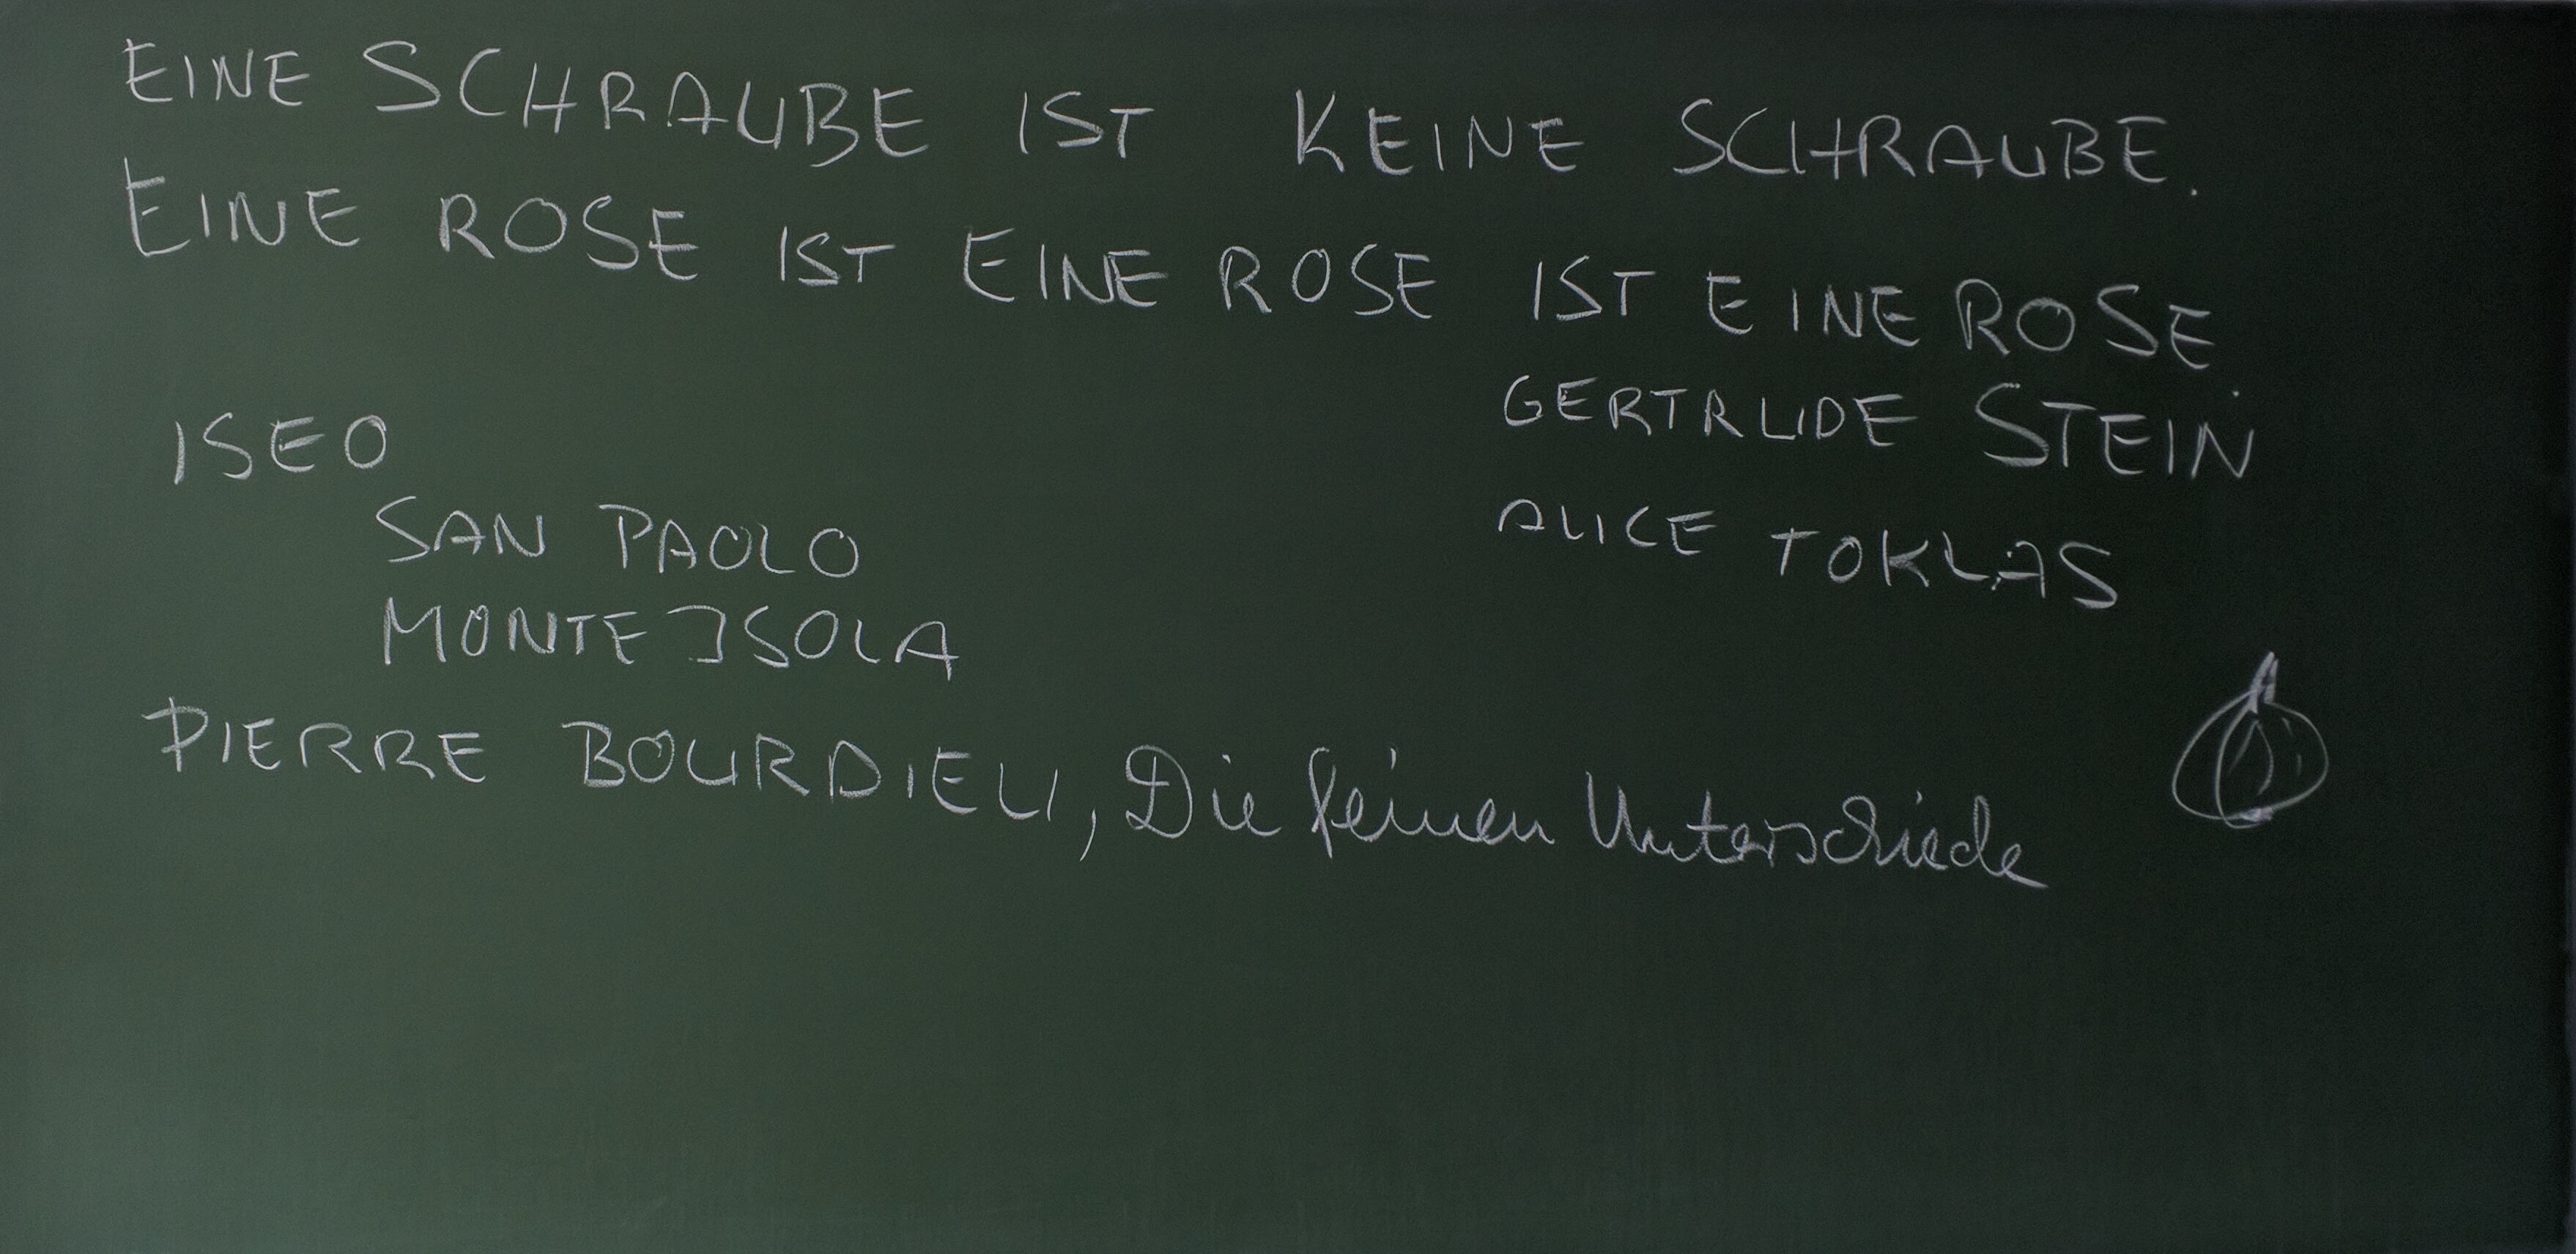 EINE SCHRAUBE IST KEINE SCHRAUBE.
EINE ROSE IST EINE ROSE IST EINE ROSE.
GERTRUDE STEIN
ALICE TOKLAS
ISEO
SAN PAOLO
MONTE ISOLA
PIERRE BOURDIEU, Die feinen Unterschiede